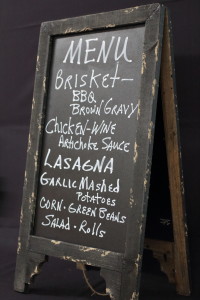 MENU
BRISKET-
BBQ
BROWN GRAVY
CHICKEN-WINE
ARTICHOKE SAUCE
LASAGNA
GARLIC MASHED
POTATOES
CORN · GREEN BEANS
SALAD · ROLLS